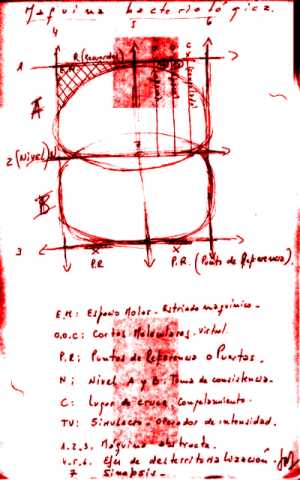 Maquina bacteriológica.
4 5 6
1 R (recuerdo) C
E.M.
A
2 (Nivel) N
7
B
3
P.R P.R. (Punto de Referencia).
E.M: Espacio Molar - Estriado maquínico -
O.O.C: Cortes Moleculares. Virtual.
P.R: Puntos de Referencia o Puertos.
N: Nivel A y B: Toma de consistencia.
C: Lugar de cruce Congelamiento.
TV: Simulacro - Operador de intensidad.
1.2.3. Máquina abstracta.
4.5.6. Ejes de desterritorialización.
7 Sinapsis.